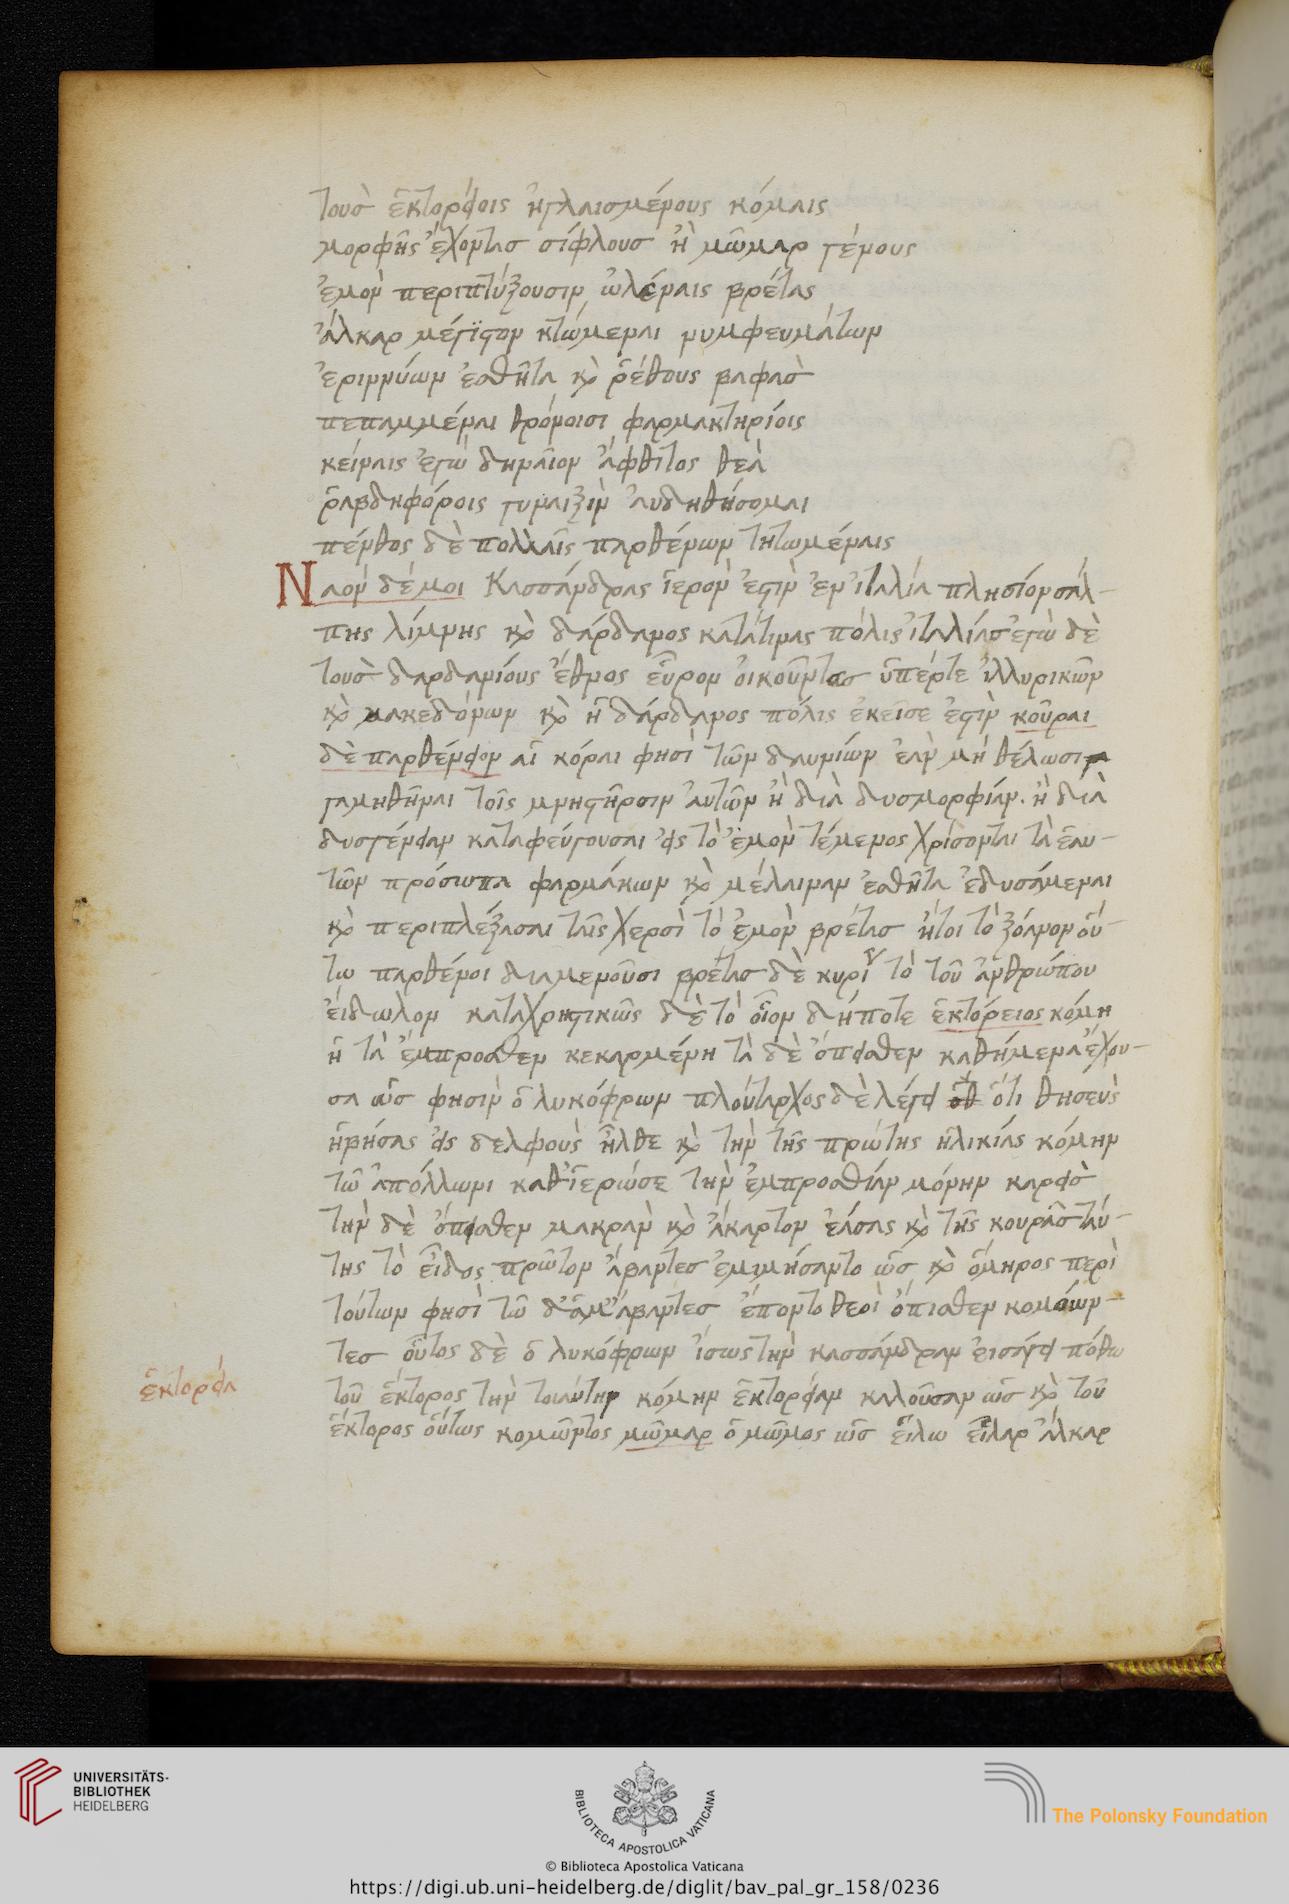 τοὺς ἑκτορείοις ἠγλαϊσμένους κόμαις
μορφῆς ἔχοντας σίφλους ἢ μῶμαρ γένους
ἐμὸν περιπτύξουσιν ὠλέναις βρέτας
ἄλκαρ μέγιστον κτώμεναι νυμφευμάτων
ἐριννύων ἐσθῆτα κὶ ῥέθους βαφὰς
πεπαμμέναι θρόνοισι φαρμακτηρίοις
κείναις ἐγὼ δηναῖον ἄφθιτος θεὰ
ῥαβδηφόροις γυναιξὶν αὐδηθήσομαι
πένθος δὲ πολλαῖς παρθένων τητωμέναις
Ναὸν δέ μοι Κασσάνδρας ἱερὸν ἐστὶν ἐν ἰταλία πλησίον σάλ-
πης λίμνης κὶ δάρδανος κατά τινας πόλις ἰταλίας ἐγὼ δὲ
τοὺς δαρδανίους ἔθνος εὗρον οἰκοῦντας ὑπέρτε ἰλλυρικῶν
κὶ μακεδόνων κὶ ἡ δάρδανος πόλις ἐκεῖσε ἐστὶν κοῦραι
δὲ παρθένειον αἱ κόραι φησὶ τῶν δαυνίων ἐὰν μὴ θέλωσι
γαμηθῆναι τοῖς μνηστῆρσιν αὐτῶν ἢ διὰ δυσμορφίαν. ἢ διὰ
δυσγένειαν καταφεύγουσαι εἰς τὸ ἐμὸν τέμενος χρίσονται τὰ ἑαυ-
τῶν πρόσωπα φαρμάκων κὶ μέλαιναν ἐσθῆτα ἐδυσάμεναι
κὶ περιπλέξασαι ταῖς χερσὶ τὸ ἐμὸν βρέτας ἤτοι τὸ ξόανον οὕ-
τω παρθένοι διαμενοῦσι βρέτας δὲ κυρί τὸ τοῦ ἀνθρώπου
εἴδωλον καταχρηστικῶς δὲ τὸ οἷον δήποτε ἑκτόρειος κόμη
ἡ τὰ ἔμπροσθεν κεκαρμένη τὰ δὲ ὄπισθεν καθήμενα ἔχου-
σα ὡς φησὶν ὁ λυκόφρων πλούταρχος δὲ λέγει ὅτι θησεὺς
ἡβήσας εἰς δελφοὺς ἦλθε κὶ τὴν τῆς πρώτης ἡλικίας κόμην
τῶ ἀπόλλωνι καθιἐρώσε τὴν ἐμπροσθίαν μόνην καρεὶς
τὴν δὲ ὄπισθεν μακρὰν κὶ ἄκαρτον ἐάσας κὶ τῆς κουρᾶς ταύ-
της τὸ εἶδος πρῶτον ἄβαντες ἐμιμήσαντο ὡς κὶ ὅμηρος περὶ
τούτων φησὶ τῶ δ' ἅμ' ἄβαντες ἕποντο θεοὶ ὄπισθεν κομόων-
τες οὗτος δὲ ὁ λυκόφρων ἴσως τὴν κασσάνδραν εἰσάγει πόθω
τοῦ ἕκτορος τὴν τοιαύτην κόμην ἑκτορείαν καλοῦσαν ὡς κὶ τοῦ
ἕκτορος οὕτως κομῶντος μῶμαρ ὁ μῶμος ὡς εἵλω εἷλαρ ἄλκαρ
ἑκτορεία
UNIVERSITÄTS-
BIBLIOTHEK
HEIDELBERG
BIBLIOTECA APOSTOLICA VATICANA
The Polonsky Foundation
© Biblioteca Apostolica Vaticana
https://digi.ub.uni-heidelberg.de/diglit/bav_pal_gr_158/0236